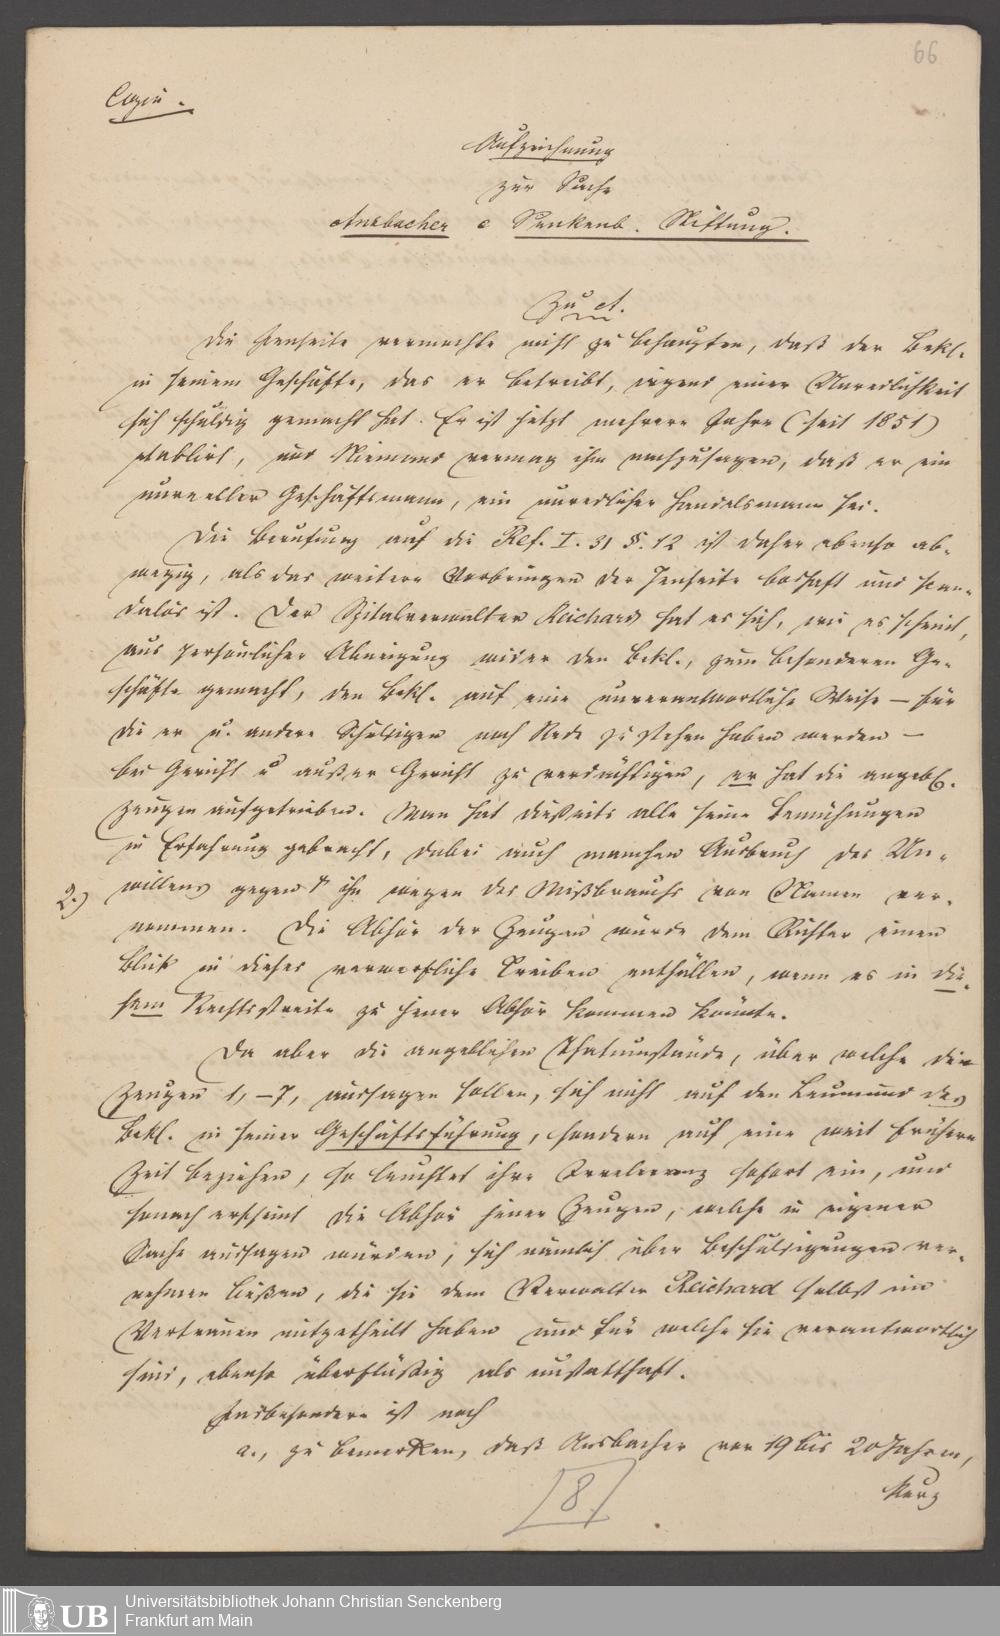 66
Copia.
Aufzeichnung
zur Sache
Ansbacher c Senkenb. Stiftung.
Zu A.
Die Jenseite vermochte nicht zu behaupten, daß der Bekl.
in seinem Geschäfte, das er betreibt, irgend einer Unredlichkeit
sich schuldig gemacht hat. Er ist jetzt mehrere Jahre (seit 1851)
etablirt, und Niemand vermag ihm nachzusagen, daß er ein
unreeller Geschäftsmann, ein unredlicher Handelsmann sei.
Die Berufung auf die Ref. I. 31 §. 12 ist daher ebenso ab-
wegig, als das weitere Vorbringen der Jenseite boshaft und scan-
dalös ist. Der Spitalverwalter Reichard hat es sich, wie es scheint,
aus persönlicher Abneigung wider den Bekl., zum besonderen Ge-
schäfte gemacht, den Bekl. auf eine unverantwortliche Weise — für
die er u. andere Schuldigen noch Rede zu stehen haben werden —
bei Gericht u außer Gericht zu verdächtigen, er hat die angebl.
Zeugen aufgetrieben. Man hat diesseits alle seine Bemühungen
in Erfahrung gebracht, dabei auch manchen Ausbruch des Un-
2.) willens gegen ihn wegen des Mißbrauchs von Namen ver-
nommen. Die Abhör der Zeugen würde dem Richter einen
Blick in dieses verwerfliche Treiben enthüllen, wenn es in die-
sem Rechtsstreite zu jener Abhör kommen könnte.
Da aber die angeblichen Thatumstände, über welche die
Zeugen 1, –7, aussagen sollen, sich nicht auf den Leumund des
Bekl. in seiner Geschäftsführung, sondern auf eine weit frühere
Zeit beziehen, so leuchtet ihre Irrelevanz sofort ein, und
sonach erscheint die Abhör jener Zeugen, welche in eigener
Sache aussagen würden, sich nämlich über Beschuldigungen ver-
nehmen ließen, die sie dem Verwalter Reichard selbst im
Vertrauen mitgetheilt haben und für welche sie verantwortlich
sind, ebenso überflüßig als unstatthaft.
Insbesondere ist noch
a., zu bemerken, daß Ansbacher vor 19 bis 20 Jahren,
8
Universitätsbibliothek Johann Christian Senckenberg
UB Frankfurt am Main